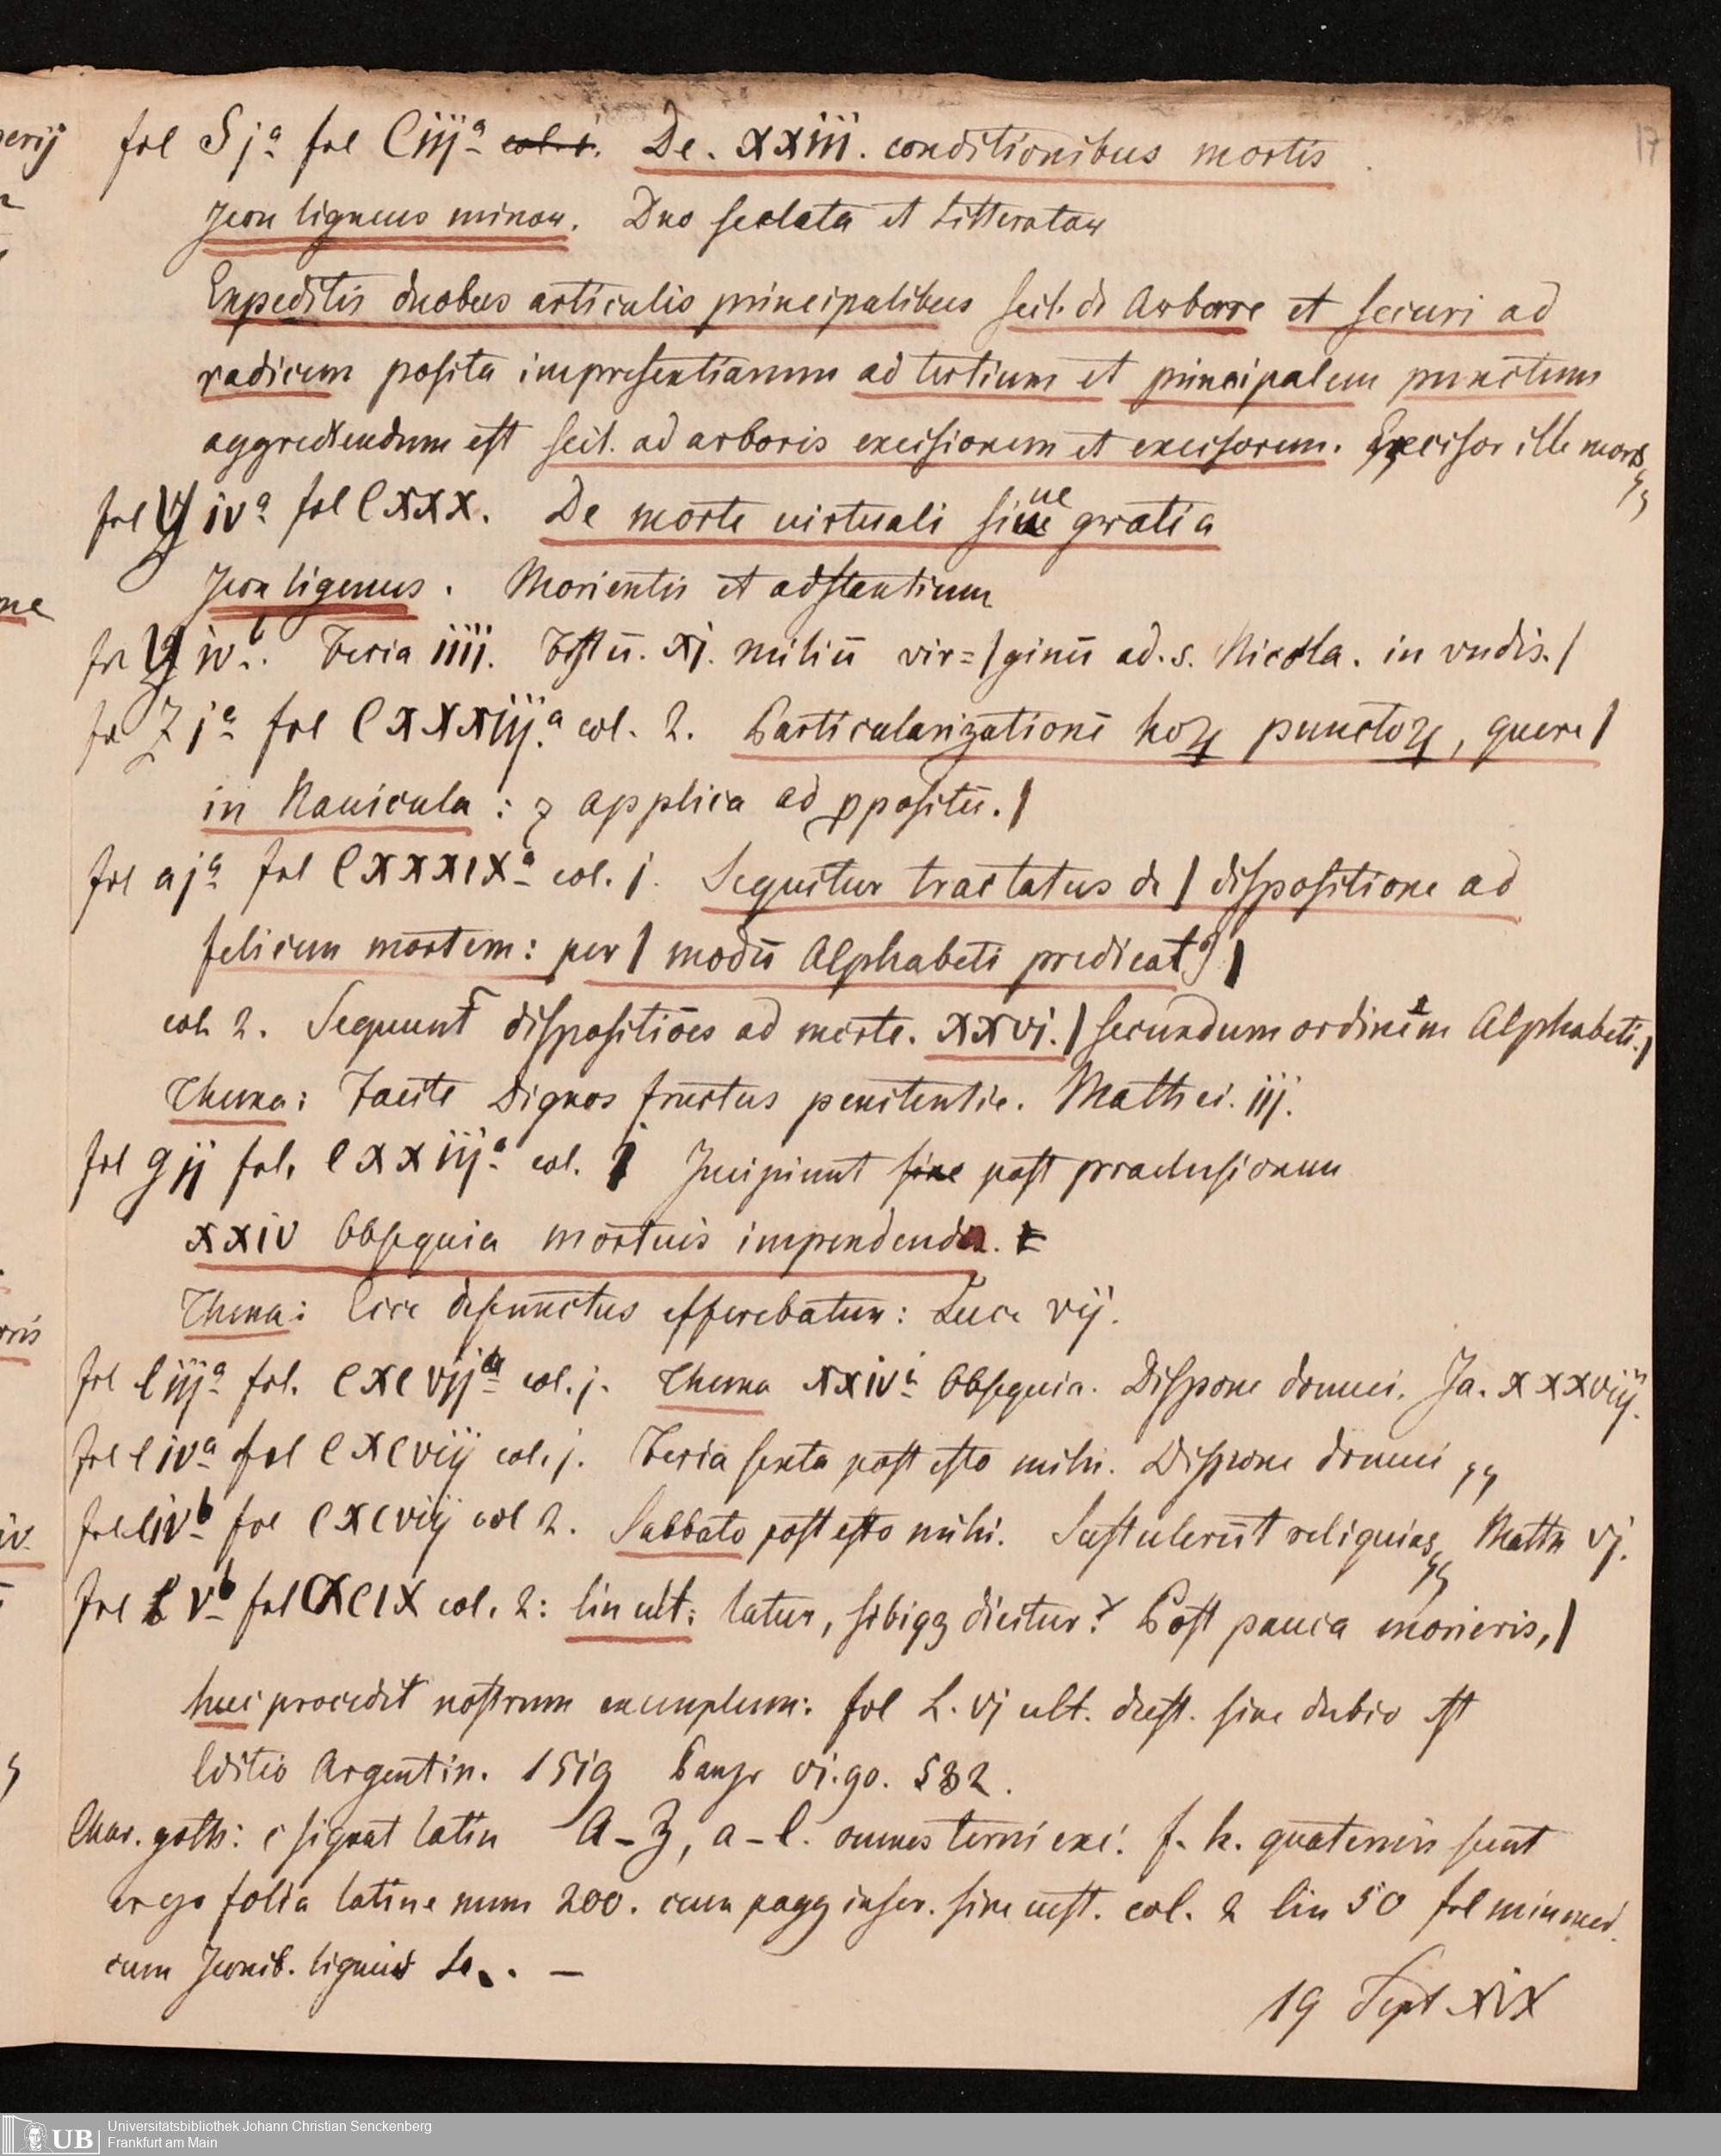 17
fol S jª fol Ciijª col. i. De. xxiii. conditionibus mortis
Icon ligneus minor. Duo scelata et Litterator
Expeditis duobus articulis principalibus scil. de Arbore et securi ad
radicem posita impresentiarum ad tertium et principalem punctum
aggrediendum est scil. ad arboris excisionem et excisorem. Excisor ille mors
fol Y ivª fol Cxxx. De morte uirtuali siue gratia
ue
Icon ligneus. Morientis et adstantium
fol Y ivᵇ. Feria iiii. Festū. xi. miliū vir=|ginū ad. s. Nicola. in vndis.|
fol Z jª fol Cxxxiijª col. 2. Particularizationē hoꝝ punctoꝝ, quere|
in Nauicula: ⁊ applica ad ꝓpositū.|
fol a jª fol Cxxxixª col. j. Sequitur tractatus de | dispositione ad
felicem mortem: per | modū Alphabeti predicatꝰ|
col. 2. Sequunt̄ dispositiōes ad morte. xxvi. | secundum ordinem Alphabeti.|
Thema: Facite Dignos fructus penitentie. Matthei. iij.
fol g ij fol. Clxxiijª col. j Incipiunt sine post praeclusionem
xxiv Obsequia mortuis impendenda.
Thema: Ecce defunctus efferebatur: Luce vij.
fol l iijª fol. Cxcvijª col. j. Thema xxivi Obsequia. Dispone domui. Ja. xxxviij.
fol l ivª fol Cxcviij col. j. Feria sexta post esto mihi. Dispone domui
fol l ivᵇ fol Cxcviij col 2. Sabbato post esto mihi. Sustulerūt reliquias Matth vj.
fol L vᵇ fol Cxcix col. 2: lin ult: latur, sibiqꝫ dicitur? Post pauca morieris,|
huc procedit nostrum exemplum: fol L. vj ult. deest. sine dubio est
Editio Argentin. 1519 Panzr vi. 90. 532.
Char. goth: c signat latin A-Z, a-l. omnes terni exc. f. k. quaterniis sunt
ergo folia latine num 200. cum pagg inscr. sine cust. col. 2 lin 50 fol min med.
cum Iconib. ligneis
19 Sept xix
UB Universitätsbibliothek Johann Christian Senckenberg
Frankfurt am Main